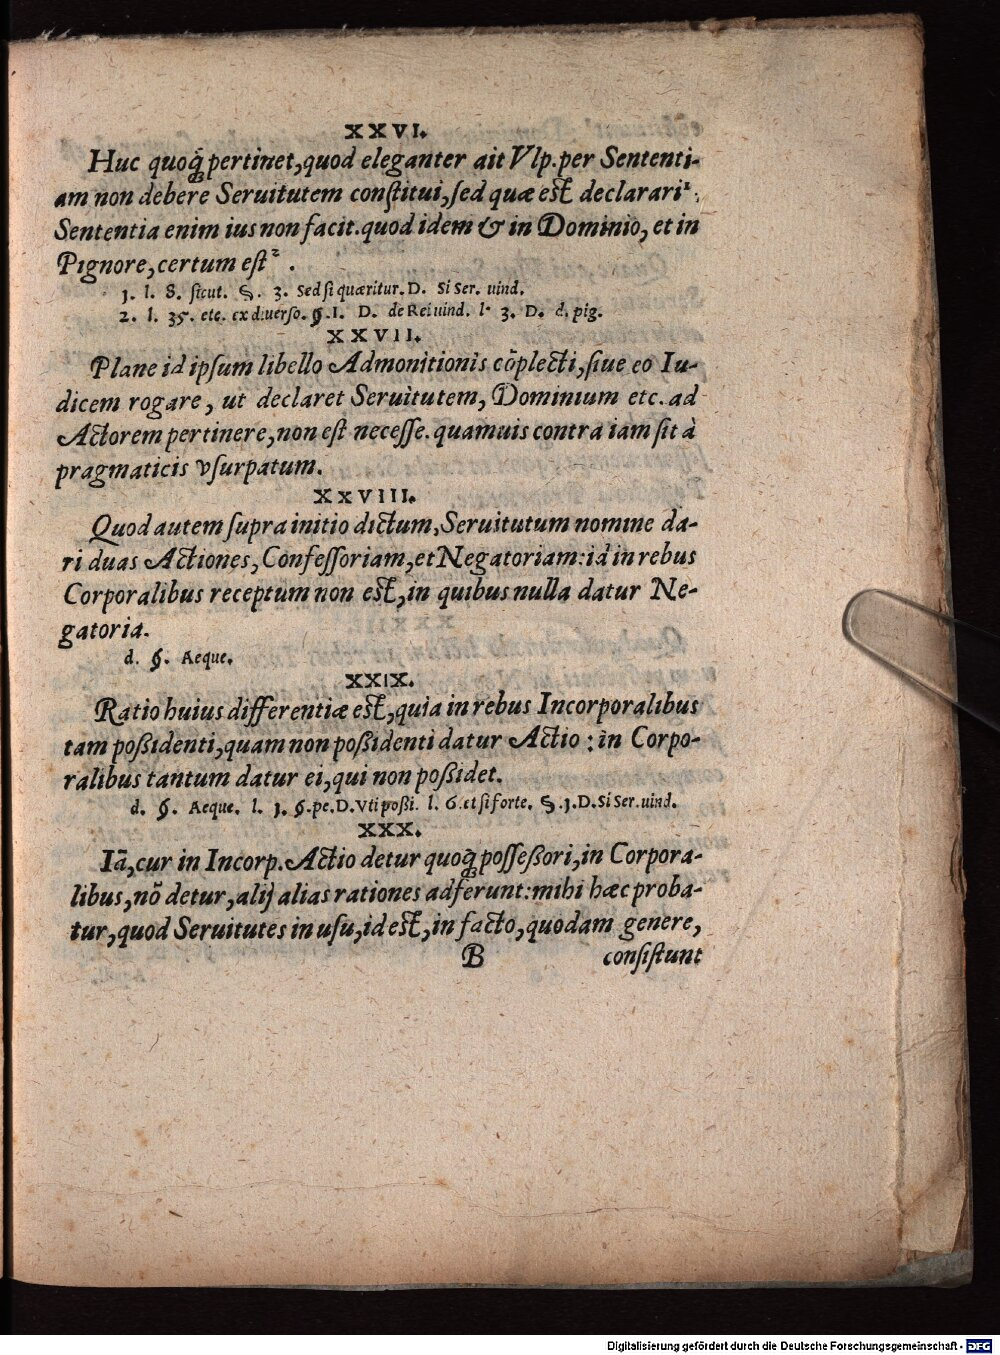 XXVI.
Huc quoq; pertinet, quod eleganter ait Vlp. per Sententi-
am non debere Seruitutem constitui, sed quæ est declarari¹:
Sententia enim ius non facit. quod idem & in Dominio, et in
Pignore, certum est².
1. l. 8. sicut. §. 3. Sed si quæritur. D. Si Ser. uind.
2. l. 35. etc. ex diuerso. §. 1. D. de Rei uind. l. 3. D. d. pig.
XXVII.
Plane id ipsum libello Admonitionis cõplecti, siue eo Iu-
dicem rogare, ut declaret Seruitutem, Dominium etc. ad
Actorem pertinere, non est necesse. quamuis contra iam sit à
pragmaticis vsurpatum.
XXVIII.
Quod autem supra initio dictum, Seruitutum nomine da-
ri duas Actiones, Confessoriam, et Negatoriam: id in rebus
Corporalibus receptum non est, in quibus nulla datur Ne-
gatoria.
d. §. Aeque.
XXIX.
Ratio huius differentiæ est, quia in rebus Incorporalibus
tam poßidenti, quam non poßidenti datur Actio: in Corpo-
ralibus tantum datur ei, qui non poßidet.
d. §. Aeque. l. 1. §. pe. D. Vti poßi. l. 6. et si forte. §. 1. D. Si Ser. uind.
XXX.
Iã, cur in Incorp. Actio detur quoq; posseßori, in Corpora-
libus, nõ detur, alij alias rationes adferunt: mihi hæc proba-
tur, quod Seruitutes in usu, id est, in facto, quodam genere,
B consistunt
Digitalisierung gefördert durch die Deutsche Forschungsgemeinschaft - DFG